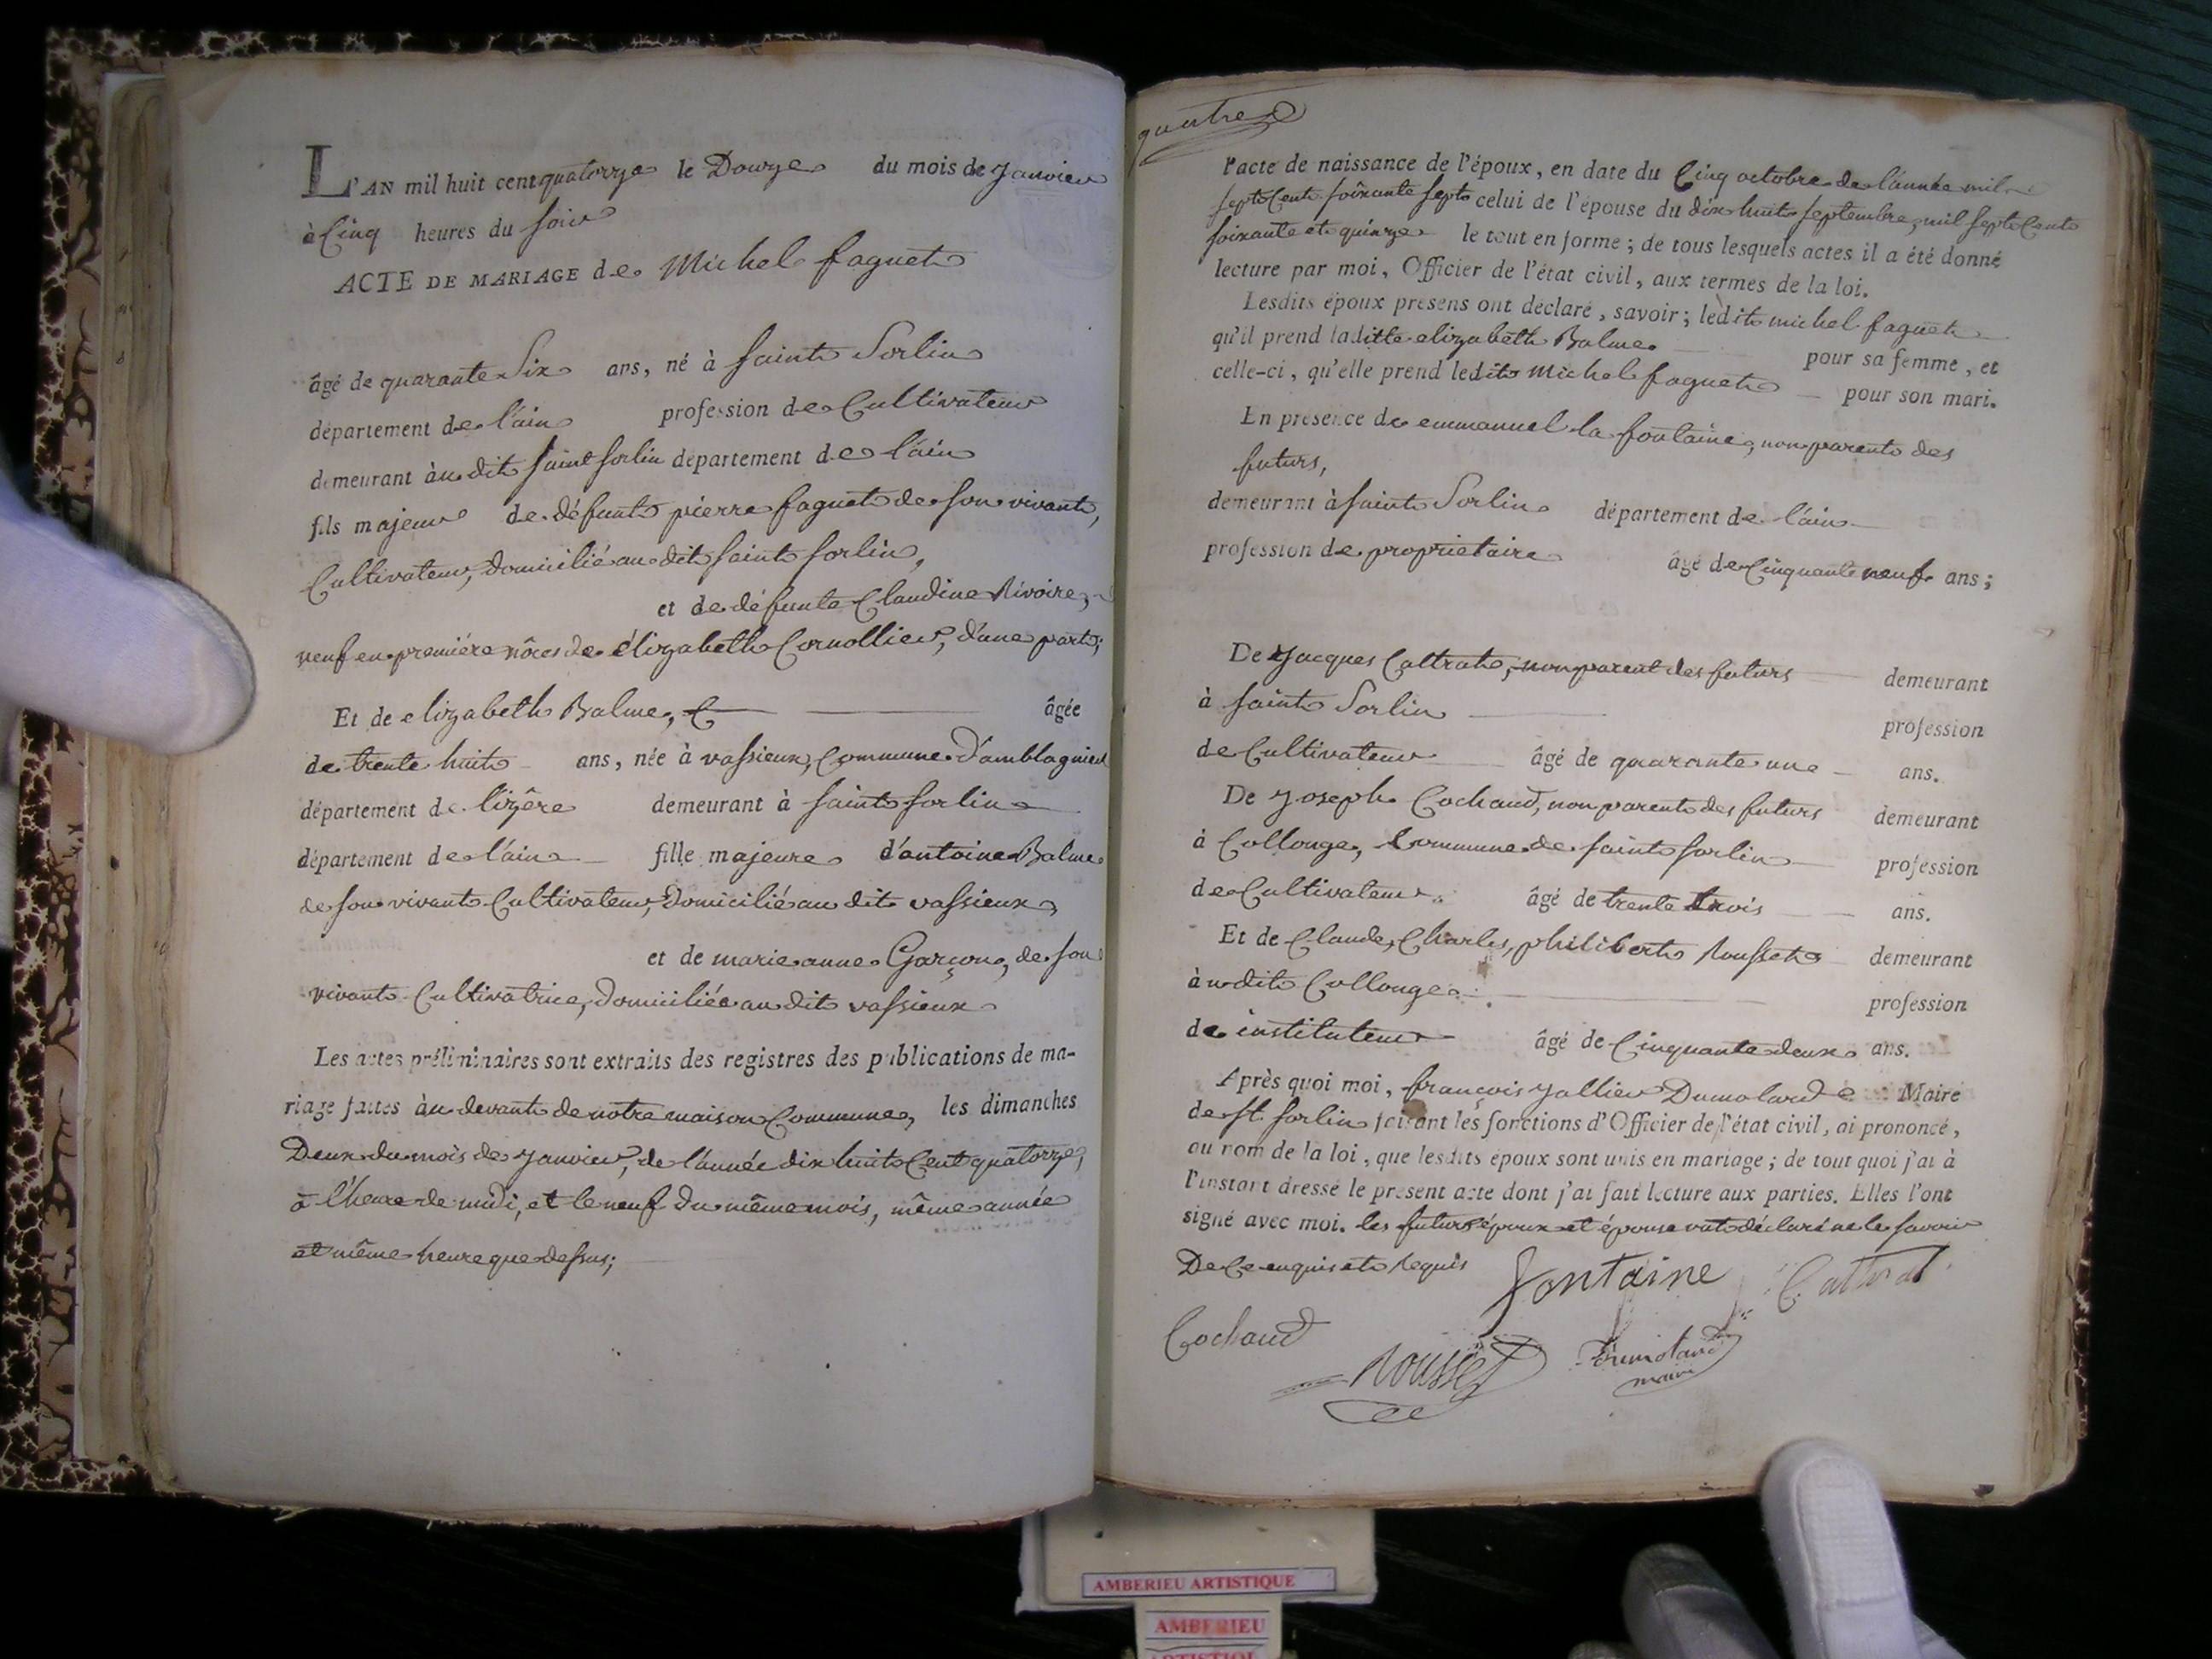 L'AN mil huit cent quatorze le Douze du mois de Janvier
à Cinq heures du soir
ACTE DE MARIAGE de Michel faguet
âgé de quarante Six ans, né à saint Sorlin
département de l'ain profession de Cultivateur
demeurant àu dit saint sorlin département de l'ain
fils majeur de défunt pierre faguet de son vivant,
Cultivateur, domicilié au dit saint sorlin,
et de défunte Claudine Rivoire,
veuf en première nôces de élizabeth Cornollier, d'une part;
Et de elizabeth Balme, âgée
de trente huit ans, née à vassieux, Commune d'amblagnieu
département de lizêre demeurant à saint sorlin
département de l'ain fille majeure d'antoine Balme
de son vivant Cultivateur, domicilié au dit vassieux,
et de marie anne Garçon, de son
vivant Cultivatrice, domiciliée au dit vassieux
Les actes préliminaires sont extraits des registres des publications de ma-
riage faites àu devant de notre maison Commune, les dimanches
Deux du mois de Janvier, de l'année dix huit Cent quatorze,
à l'heure de midi, et le neuf du même mois, même année
et même heure que dessus;
quatre
l'acte de naissance de l'époux, en date du Cinq octobre de l'année mil
sept Cent soixante sept celui de l'épouse du dix huit septembre, mil sept Cent
soixante et quinze le tout en forme; de tous lesquels actes il a été donné
lecture par moi, Officier de l'état civil, aux termes de la loi.
Lesdits époux présens ont déclaré, savoir; ledit michel faguet
qu'il prend laditte elizabeth Balme pour sa femme, et
celle-ci, qu'elle prend ledit Michel faguet pour son mari.
En présence de emmanuel la fontaine, non parent des
futurs,
demeurant à saint Sorlin département de l'ain
profession de propriétaire âgé de Cinquante neuf ans;
De Jacques Cattrat, non parent des futurs demeurant
à saint Sorlin profession
de Cultivateur âgé de quarante une ans.
De Joseph Cochaud, non parent des futurs demeurant
à Collonge, Commune de saint sorlin profession
de Cultivateur âgé de trente trois ans.
Et de Claude, Charles, philibert Rousset demeurant
àu dit Collonge profession
de instituteur âgé de Cinquante deux ans.
Après quoi moi, françois Jallier Dumolard Maire
de St. sorlin faisant les fonctions d'Officier de l'état civil, ai prononcé,
au nom de la loi, que lesdits époux sont unis en mariage; de tout quoi j'ai à
l'instant dressé le présent acte dont j'ai fait lecture aux parties. Elles l'ont
signé avec moi. les futurs époux et épouse ont déclaré ne le savoir
De Ce enquis et requis fontaine Cattrat
Cochaud
Rousset Dumolard
maire
AMBERIEU ARTISTIQUE
AMBERIEU
ARTISTIQUE